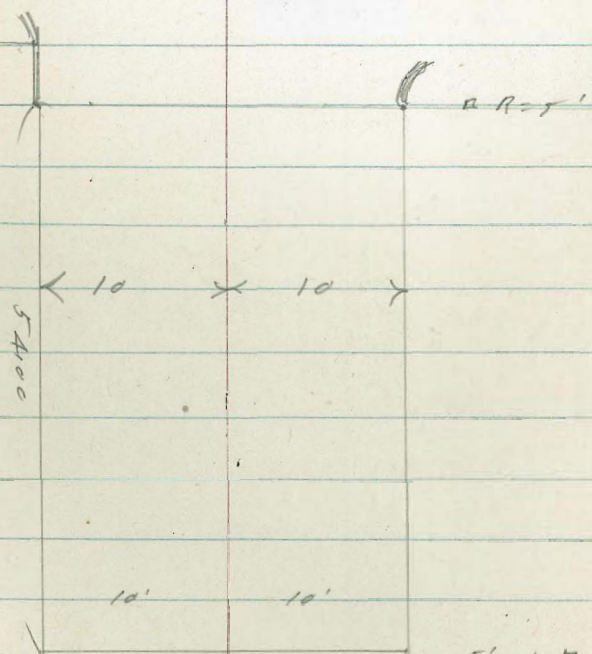 R=5'
10 10
54.00
10' 10'